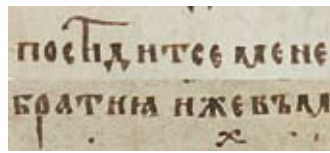 посѣдитсе мене
братиꙗ ижевъм